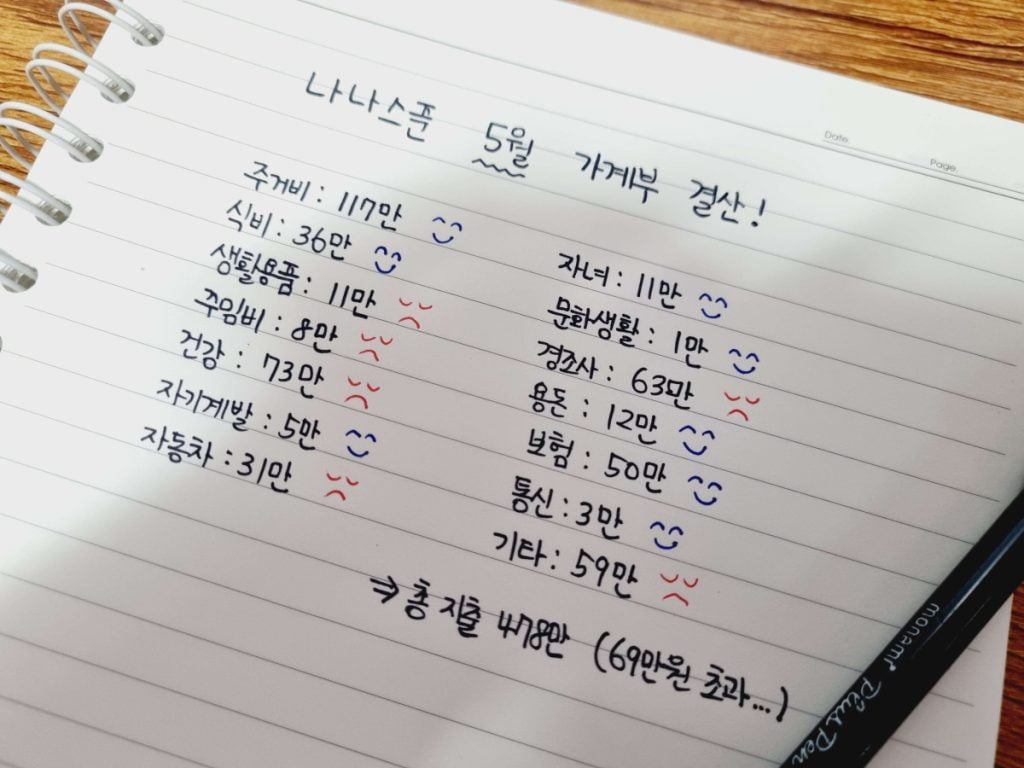 Date.
Page.
나나스쭌 5월 가계부 결산!
주거비 : 117만
식비 : 36만
생활용품 : 11만
주임비 : 8만
건강 : 73만
자기계발 : 5만
자동차 : 31만
자녀 : 11만
문화생활 : 1만
경조사 : 63만
용돈 : 12만
보험 : 50만
통신 : 3만
기타 : 59만
⇒ 총 지출 478만 (69만원 초과...)
monami Plus Pen